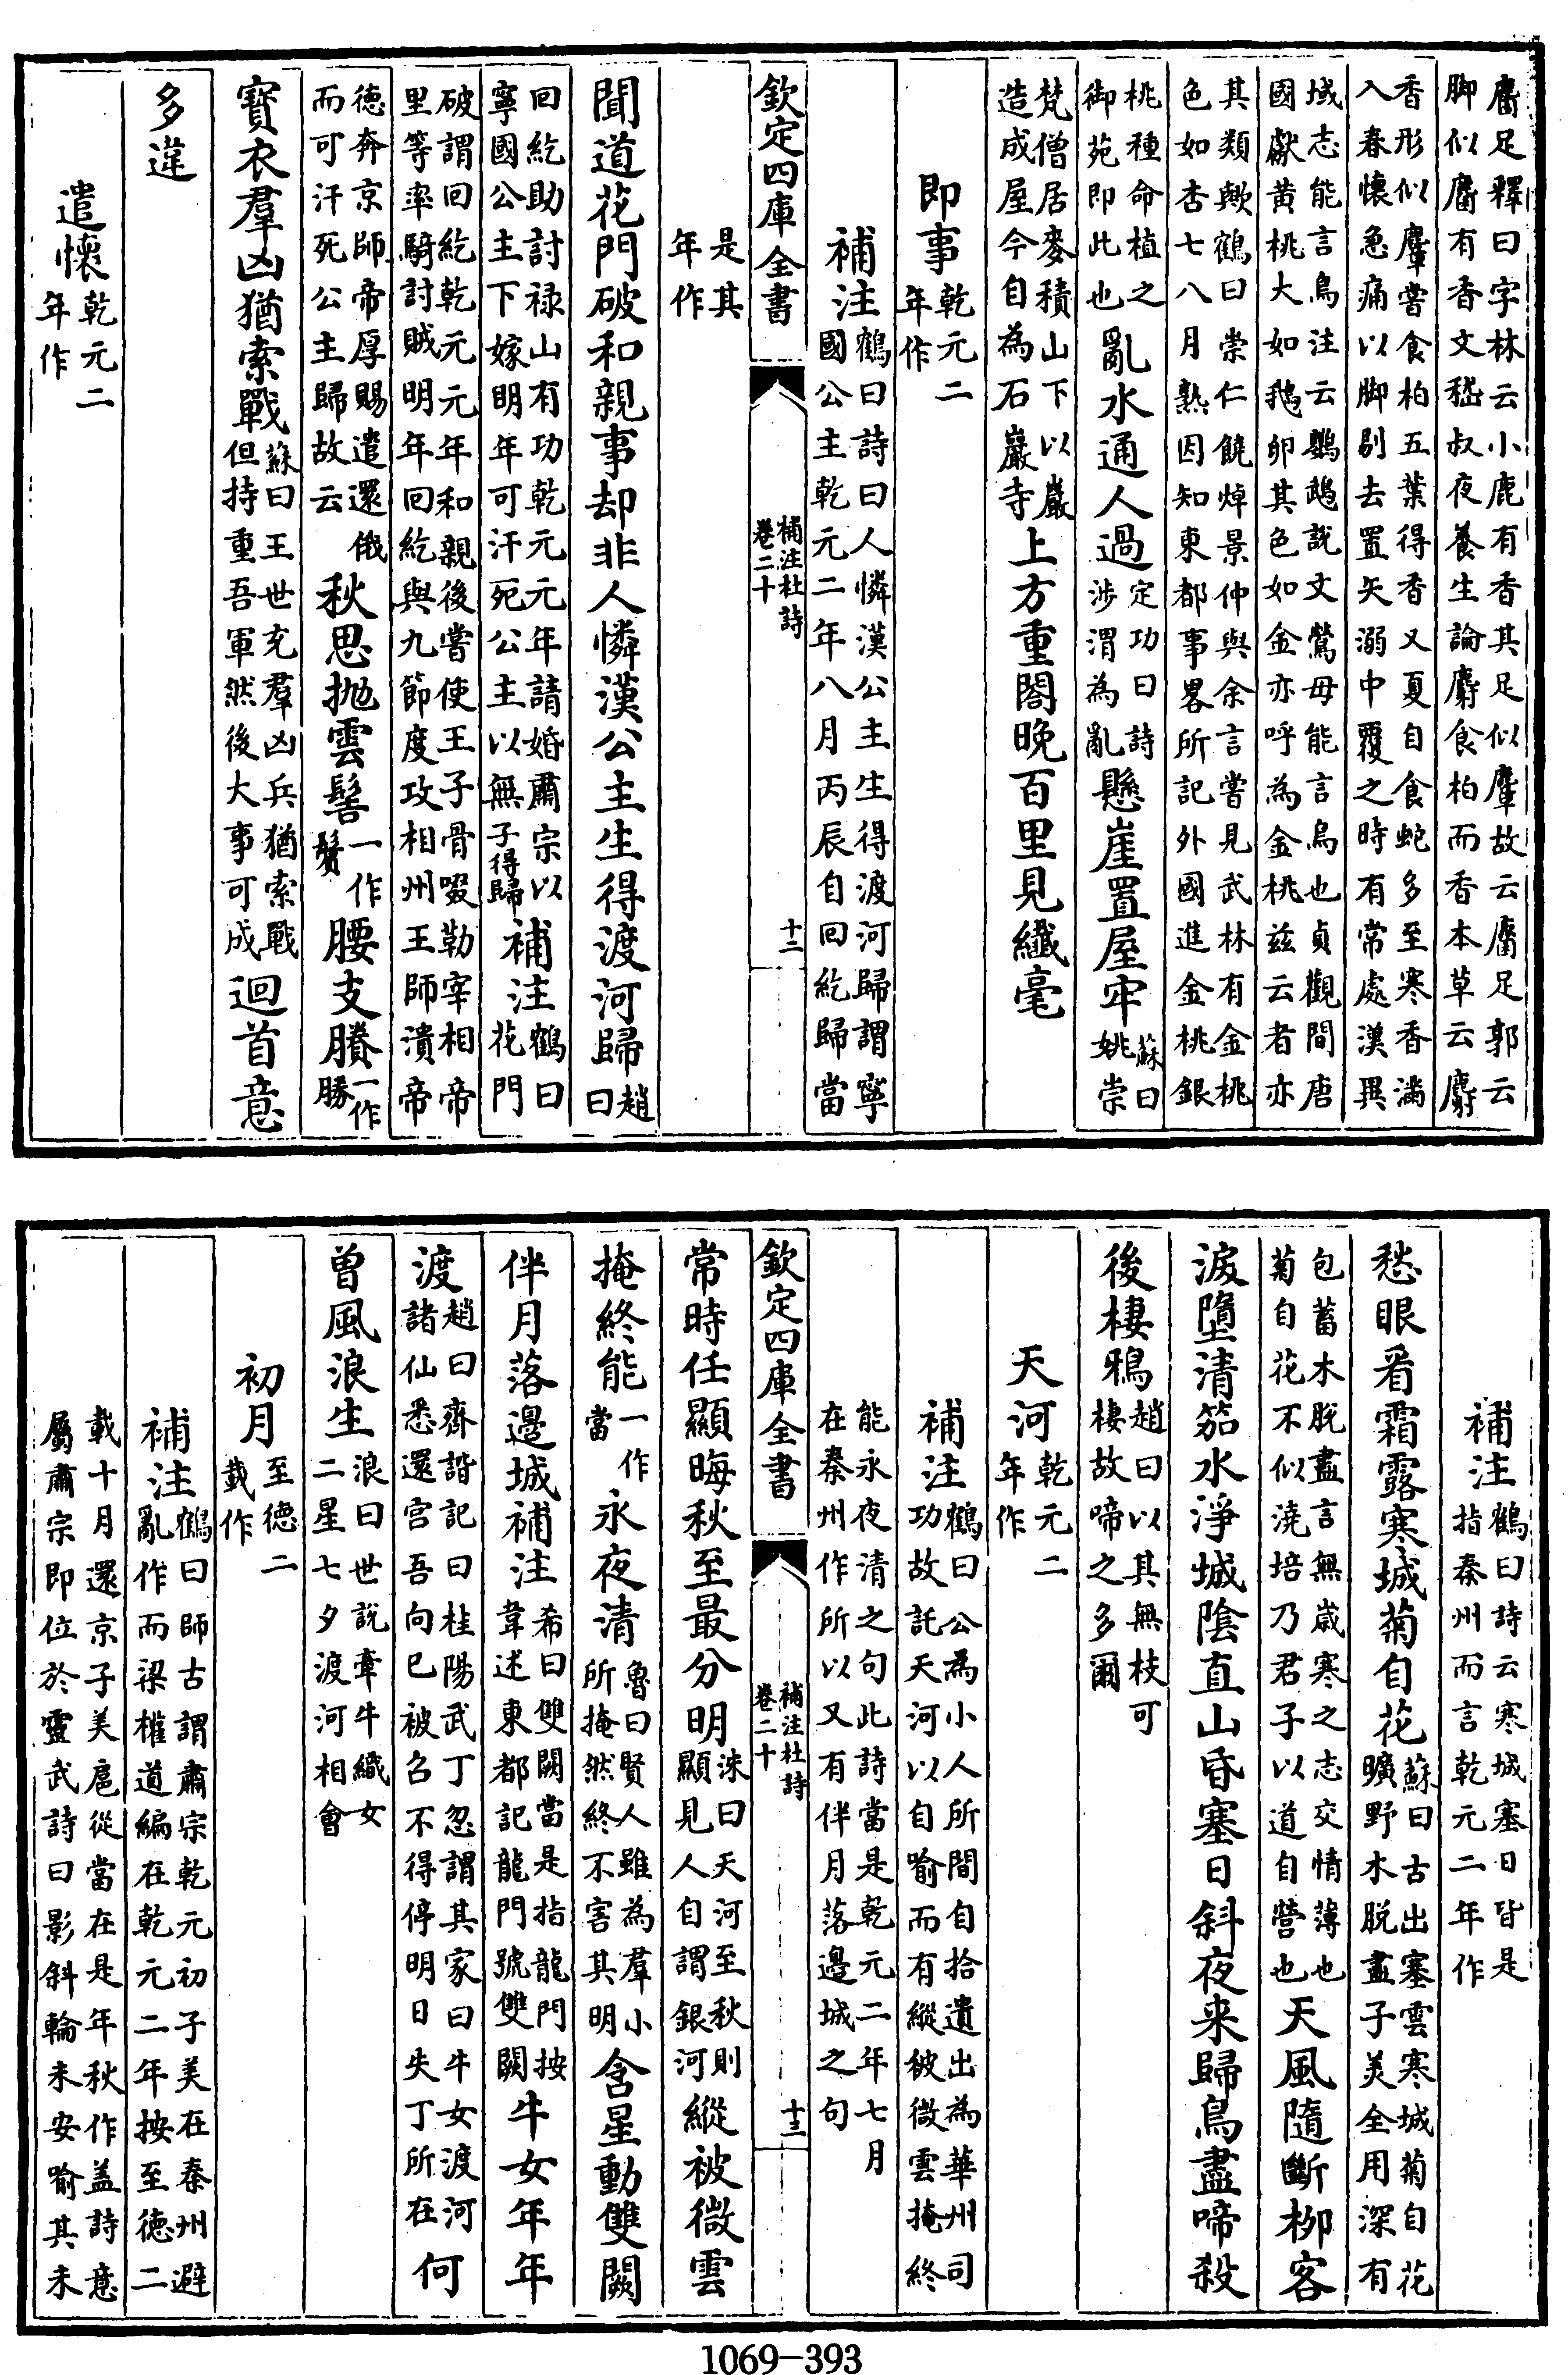 麕足釋曰字林云小鹿有香其足似麞故云麕足郭云
脚似麕有香文嵇叔夜養生論麝食柏而香本草云麝
香形似麞嘗食柏五葉得香又夏自食蛇多至寒香滿
入春懷急痛以脚剔去置矢溺中覆之時有常處漢異
域志能言鳥注云鸚鵡說文鶯母能言鳥也貞觀間唐
國獻黄桃大如鵝卵其色如金亦呼為金桃兹云者亦
其類歟鶴曰崇仁饒焯景仲與余言嘗見武林有金桃
色如杏七八月熟因知東都事畧所記外國進金桃銀
桃種命植之御苑即此也亂水通人過定功曰詩涉渭為亂懸崖置屋牢蘇曰姚崇
梵僧居麥積山下以巖造成屋今自為石巖寺上方重閣晚百里見纖毫
即事乾元二年作
補注鶴曰詩曰人憐漢公主生得渡河歸謂寧國公主乾元二年八月丙辰自回紇歸當
欽定四庫全書 補注杜詩卷二十 十二
是其年作
聞道花門破和親事却非人憐漢公主生得渡河歸趙曰
回紇助討禄山有功乾元元年請婚肅宗以寧國公主下嫁明年可汗死公主以無子得歸補注鶴曰花門
破謂回紇乾元元年和親後嘗使王子骨啜勒宰相帝
里等率騎討賊明年回紇與九節度攻相州王師潰帝
德奔京師帝厚賜遣還俄而可汗死公主歸故云秋思抛雲髻一作鬢腰支賸一作勝
寳衣羣凶猶索戰蘇曰王世充羣凶兵猶索戰但持重吾軍然後大事可成迴首意
多違
遣懷乾元二年作
補注鶴曰詩云寒城塞日皆是指秦州而言乾元二年作
愁眼看霜露寒城菊自花蘇曰古出塞雲寒城菊自花曠野木脱盡子美全用深有
包蓄木脱盡言無歲寒之志交情薄也菊自花不似澆培乃君子以道自營也天風隨斷柳客
淚墮清笳水淨城陰直山昏塞日斜夜来歸鳥盡啼殺
後棲鴉趙曰以其無枝可棲故啼之多爾
天河乾元二年作
補注鶴曰公為小人所間自拾遺出為華州司功故託天河以自喻而有縱被微雲掩終
能永夜清之句此詩當是乾元二年七月在秦州作所以又有伴月落邊城之句
欽定四庫全書 補注杜詩卷二十 十三
常時任顯晦秋至最分明洙曰天河至秋則顯見人自謂銀河縱被微雲
掩終能一作當永夜清魯曰賢人雖為羣小所掩然終不害其明含星動雙闕
伴月落邊城補注希曰雙闕當是指龍門按韋述東都記龍門號雙闕牛女年年
渡趙曰齊諧記曰桂陽武丁忽謂其家曰牛女渡河諸仙悉還宫吾向已被召不得停明日失丁所在何
曾風浪生浪曰世説牽牛織女二星七夕渡河相會
初月至德二載作
補注鶴曰師古謂肅宗乾元初子美在秦州避亂作而梁權道編在乾元二年按至德二
載十月還京子美扈從當在是年秋作盖詩意屬肅宗即位於靈武詩曰影斜輪未安喻其未
1069-393